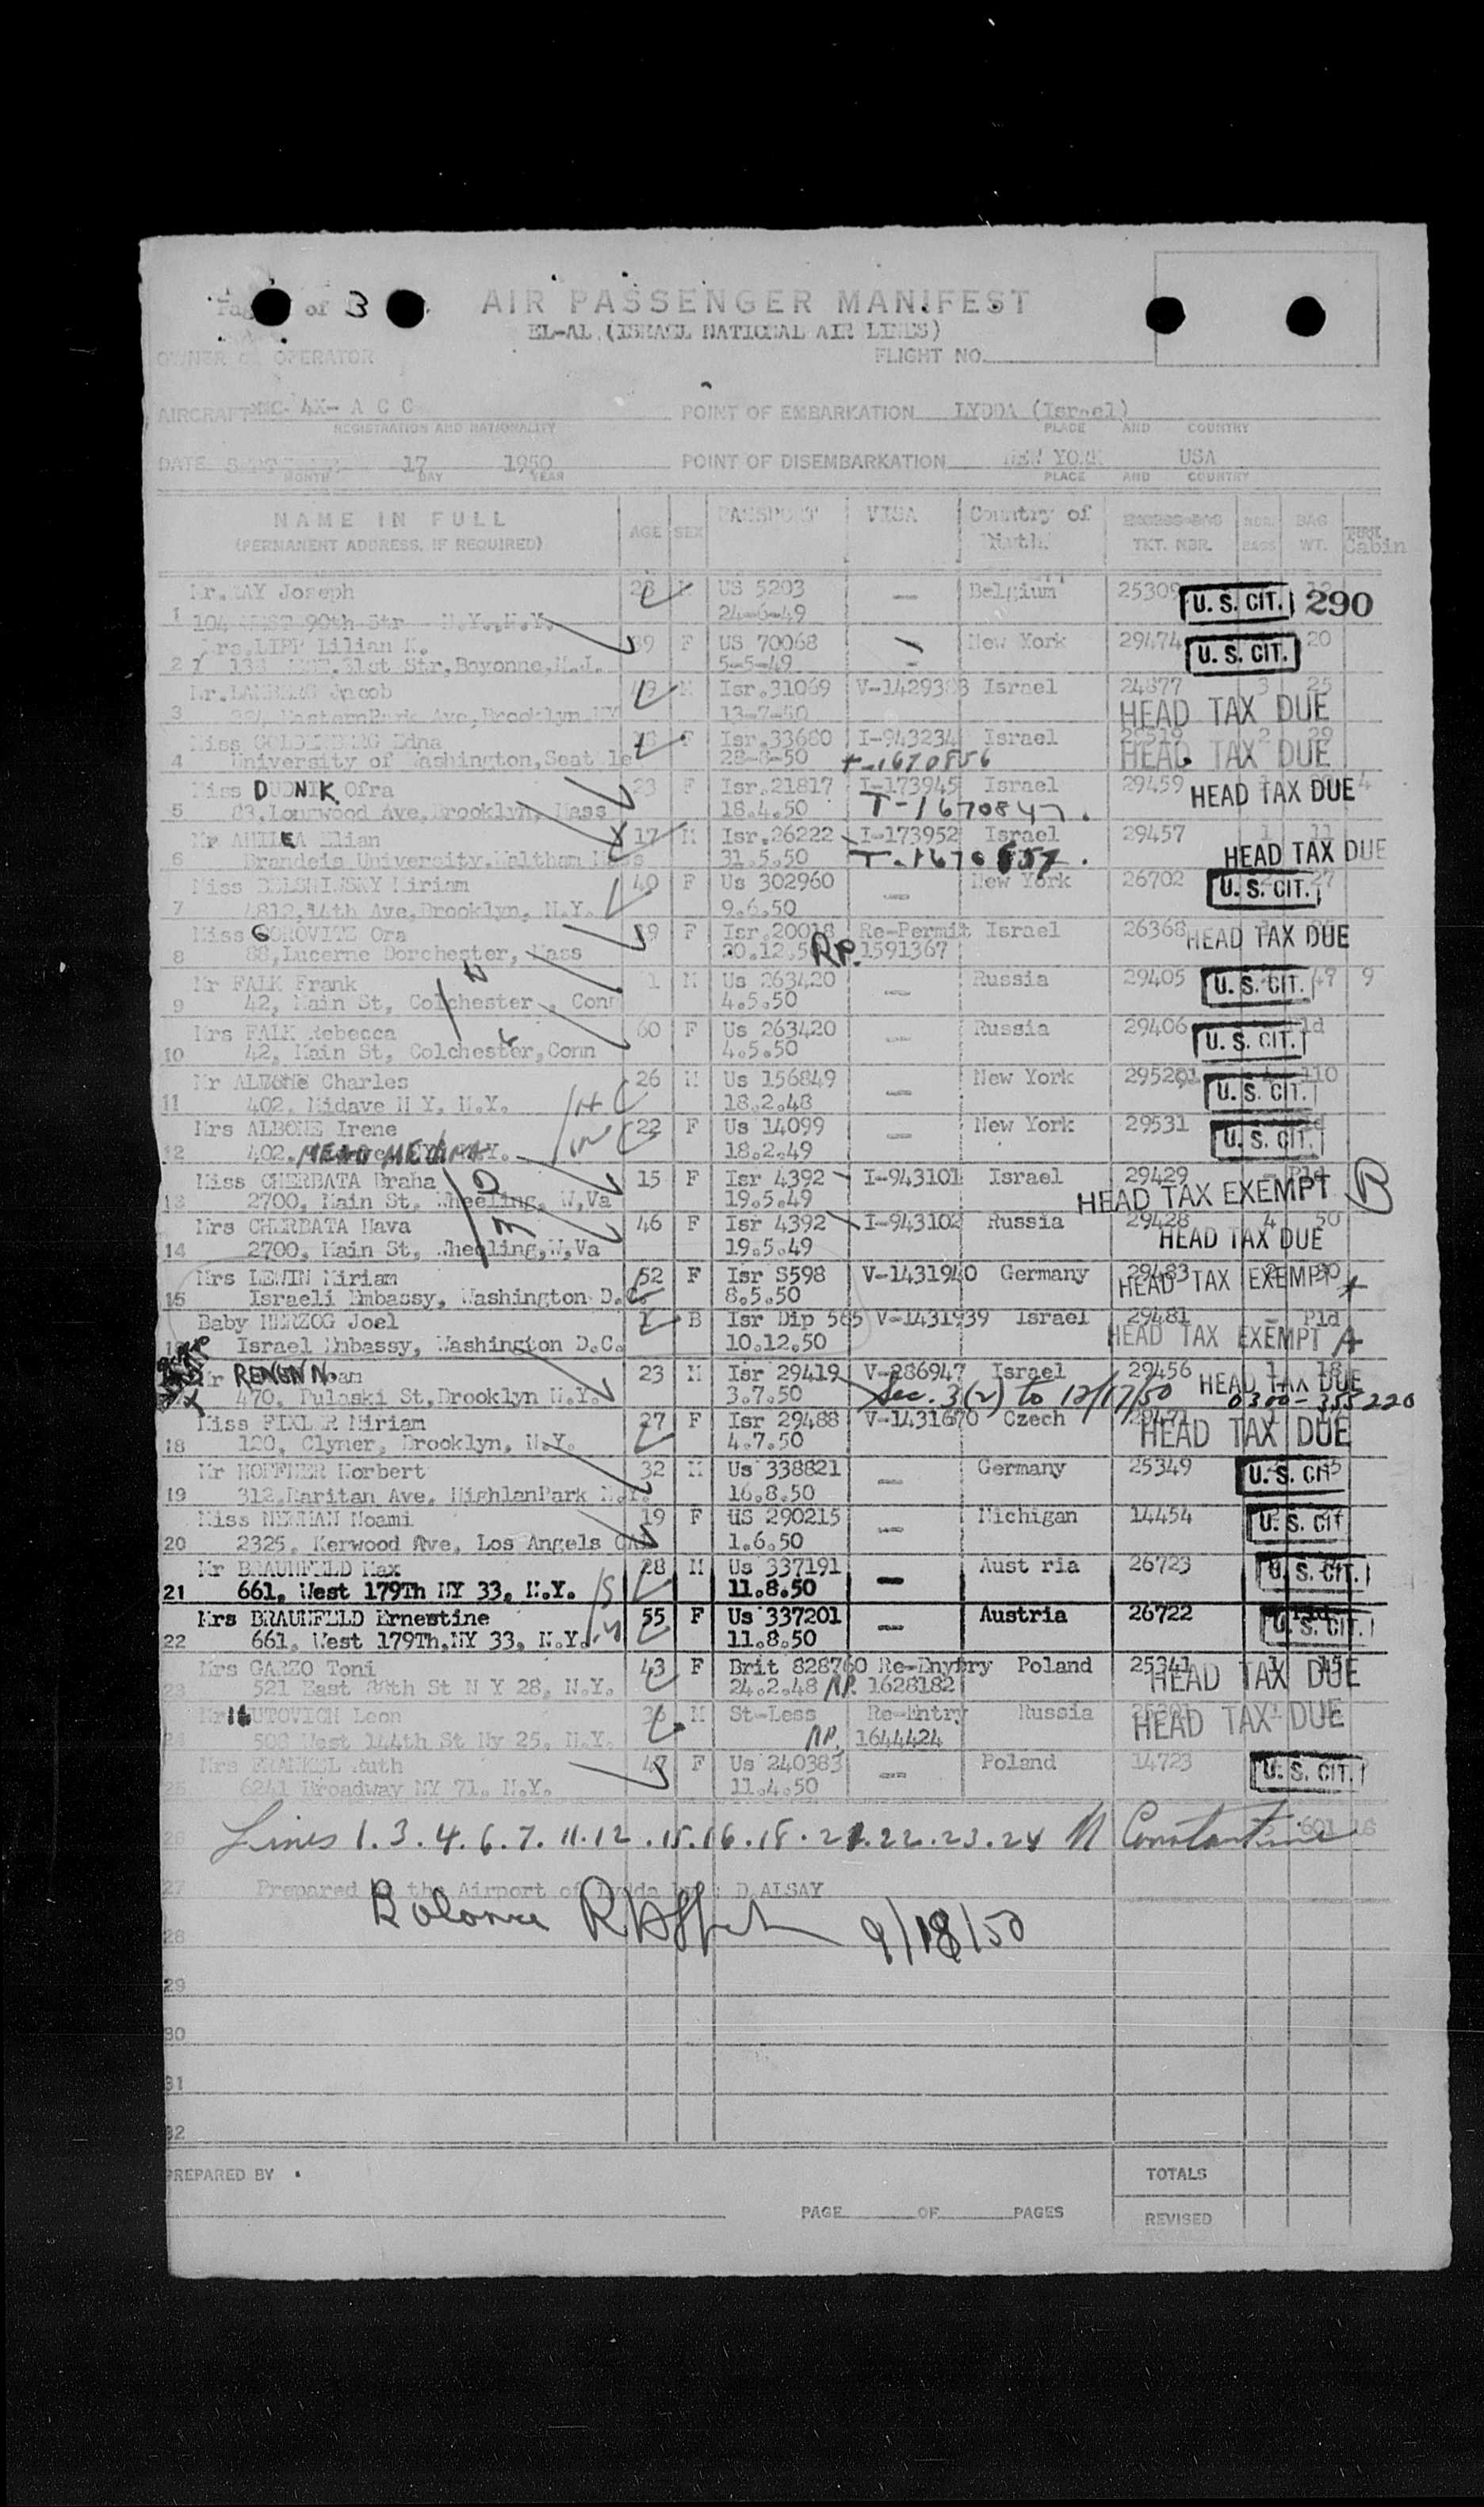 of 3 AIR PASSENGER MANIFEST
EL-AL (ISRAEL NATIONAL AIR LINES)
OWNER or OPERATOR FLIGHT NO.
AIRCRAFT 4X- A C C POINT OF EMBARKATION LYDDA (Israel)
REGISTRATION AND NATIONALITY PLACE AND COUNTRY
DATE 17 1950 POINT OF DISEMBARKATION NEW YORK USA
MONTH DAY YEAR PLACE AND COUNTRY
NAME IN FULL AGE SEX PASSPORT VISA Country of BAG
(PERMANENT ADDRESS, IF REQUIRED) Birth TKT. NBR. BAGS WT. Cabin
Joseph US 5203 — Belgium 25309 U. S. CIT. 290
1 104 90th Str N.Y., N.Y. 24-6-49
LIPP Lilian K. 39 F US 70068 — New York 29474 20
2 31st Str, Bayonne, N.J. 5-5-49 U. S. CIT.
Jacob 49 M Isr.31069 V-1429383 Israel 24877 3 25
3 Eastern Park Ave, Brooklyn NY 13-7-50 HEAD TAX DUE
Miss GOLDENBERG Edna 18 F Isr.33680 I-943234 Israel 2 29
4 University of Washington, Seat le 28-8-50 T-1670856 HEAD TAX DUE
Miss DUDNIK Ofra 23 F Isr.21817 I-173945 Israel 29459 HEAD TAX DUE 4
5 83, Longwood Ave, Brooklyn, Mass 18.4.50 T-1670847.
Mr Elian 17 M Isr.26222 I-173952 Israel 29457 1 11
6 Brandeis University. Waltham Mass 31.5.50 T-1670857. HEAD TAX DUE
Miss Miriam 40 F Us 302960 — New York 26702 27
7 4812, 14th Ave, Brooklyn, N.Y. 9.6.50 U. S. CIT.
Miss GOROVITZ Ora 19 F Isr.20018 Re-Permit Israel 26368 HEAD TAX DUE
8 88, Lucerne Dorchester, Mass 20.12. RP. 1591367
Mr FALK Frank 1 M Us 263420 — Russia 29405 U. S. CIT. 49 9
9 42, Main St, Colchester, Conn 4.5.50
Mrs FALK Rebecca 60 F Us 263420 — Russia 29406
10 42, Main St, Colchester, Conn 4.5.50 U. S. CIT.
Mr ALBONE Charles 26 M Us 156849 — New York 110
11 402, Midave N Y, N.Y. 18.2.48 U. S. CIT.
Mrs ALBONE Irene 22 F Us 14099 — New York 29531
12 402. 18.2.49 U. S. CIT.
Miss CHERBATA Braha 15 F Isr 4392 I-943101 Israel 29429 Pld B
13 2700, Main St, Wheeling, W,Va 19.5.49 HEAD TAX EXEMPT
Mrs CHERBATA Hava 46 F Isr 4392 I-943102 Russia 29428 4 50
14 2700, Main St, Wheeling, W,Va 19.5.49 HEAD TAX DUE
Mrs LEWIN Miriam 52 F Isr S598 V-1431940 Germany 29483
15 Israeli Embassy, Washington D.C. 8.5.50 HEAD TAX EXEMPT
Baby HERZOG Joel B Isr Dip 565 V-1431939 Israel 29481 — Pld
Israel Embassy, Washington D.C. 10.12.50 HEAD TAX EXEMPT A
Mr RENEN Noam 23 M Isr 29419 V-286947 Israel 29456 1 18 HEAD TAX DUE
470, Pulaski St, Brooklyn N.Y. 3.7.50 Sec. 3(2) to 12/17/50 0300-355220
Miss FIXLER Miriam 27 F Isr 29488 V-1431670 Czech 29471
18 120, Clymer, Brooklyn, N.Y. 4.7.50 HEAD TAX DUE
Mr HOFFNER Norbert 32 M Us 338821 — Germany 25349 U. S. CIT
19 312, Raritan Ave. HighlanPark N.Y. 16.8.50
Miss NEWMAN Noami 19 F US 290215 — Michigan 14454 U. S. CIT
20 2325, Kerwood Ave, Los Angels 1.6.50
Mr BRAUNFELD Max 28 M Us 337191 — Aust ria 26723 U. S. CIT.
21 661, West 179Th NY 33, N.Y. 11.8.50
Mrs BRAUNFELD Ernestine 55 F Us 337201 — Austria 26722 U. S. CIT.
22 661, West 179Th, NY 33, N.Y. 11.8.50
Mrs GARZO Toni 43 F Brit 828760 Re-Enytry Poland 25341 1 15 HEAD TAX DUE
23 521 East 88th St N Y 28, N.Y. 24.2.48 RP. 1628182
Mr GUTOVICH Leon M St-Less Re-Entry Russia HEAD TAX DUE
24 508 West 144th St Ny 25, N.Y. RP. 1644424
Mrs FRANKEL Ruth 48 F Us 240383 — Poland 14723 U. S. CIT.
25 6241 Broadway NY 71, N.Y. 11.4.50
26 Lines 1.3.4.6.7.11.12.15.16.18.21.22.23.24 Constantine 601 16
27 Prepared at the Airport of Lydda by: D.ALSAY
28 Balance 9/18/50
29
30
31
32
PREPARED BY TOTALS
PAGE OF PAGES REVISED